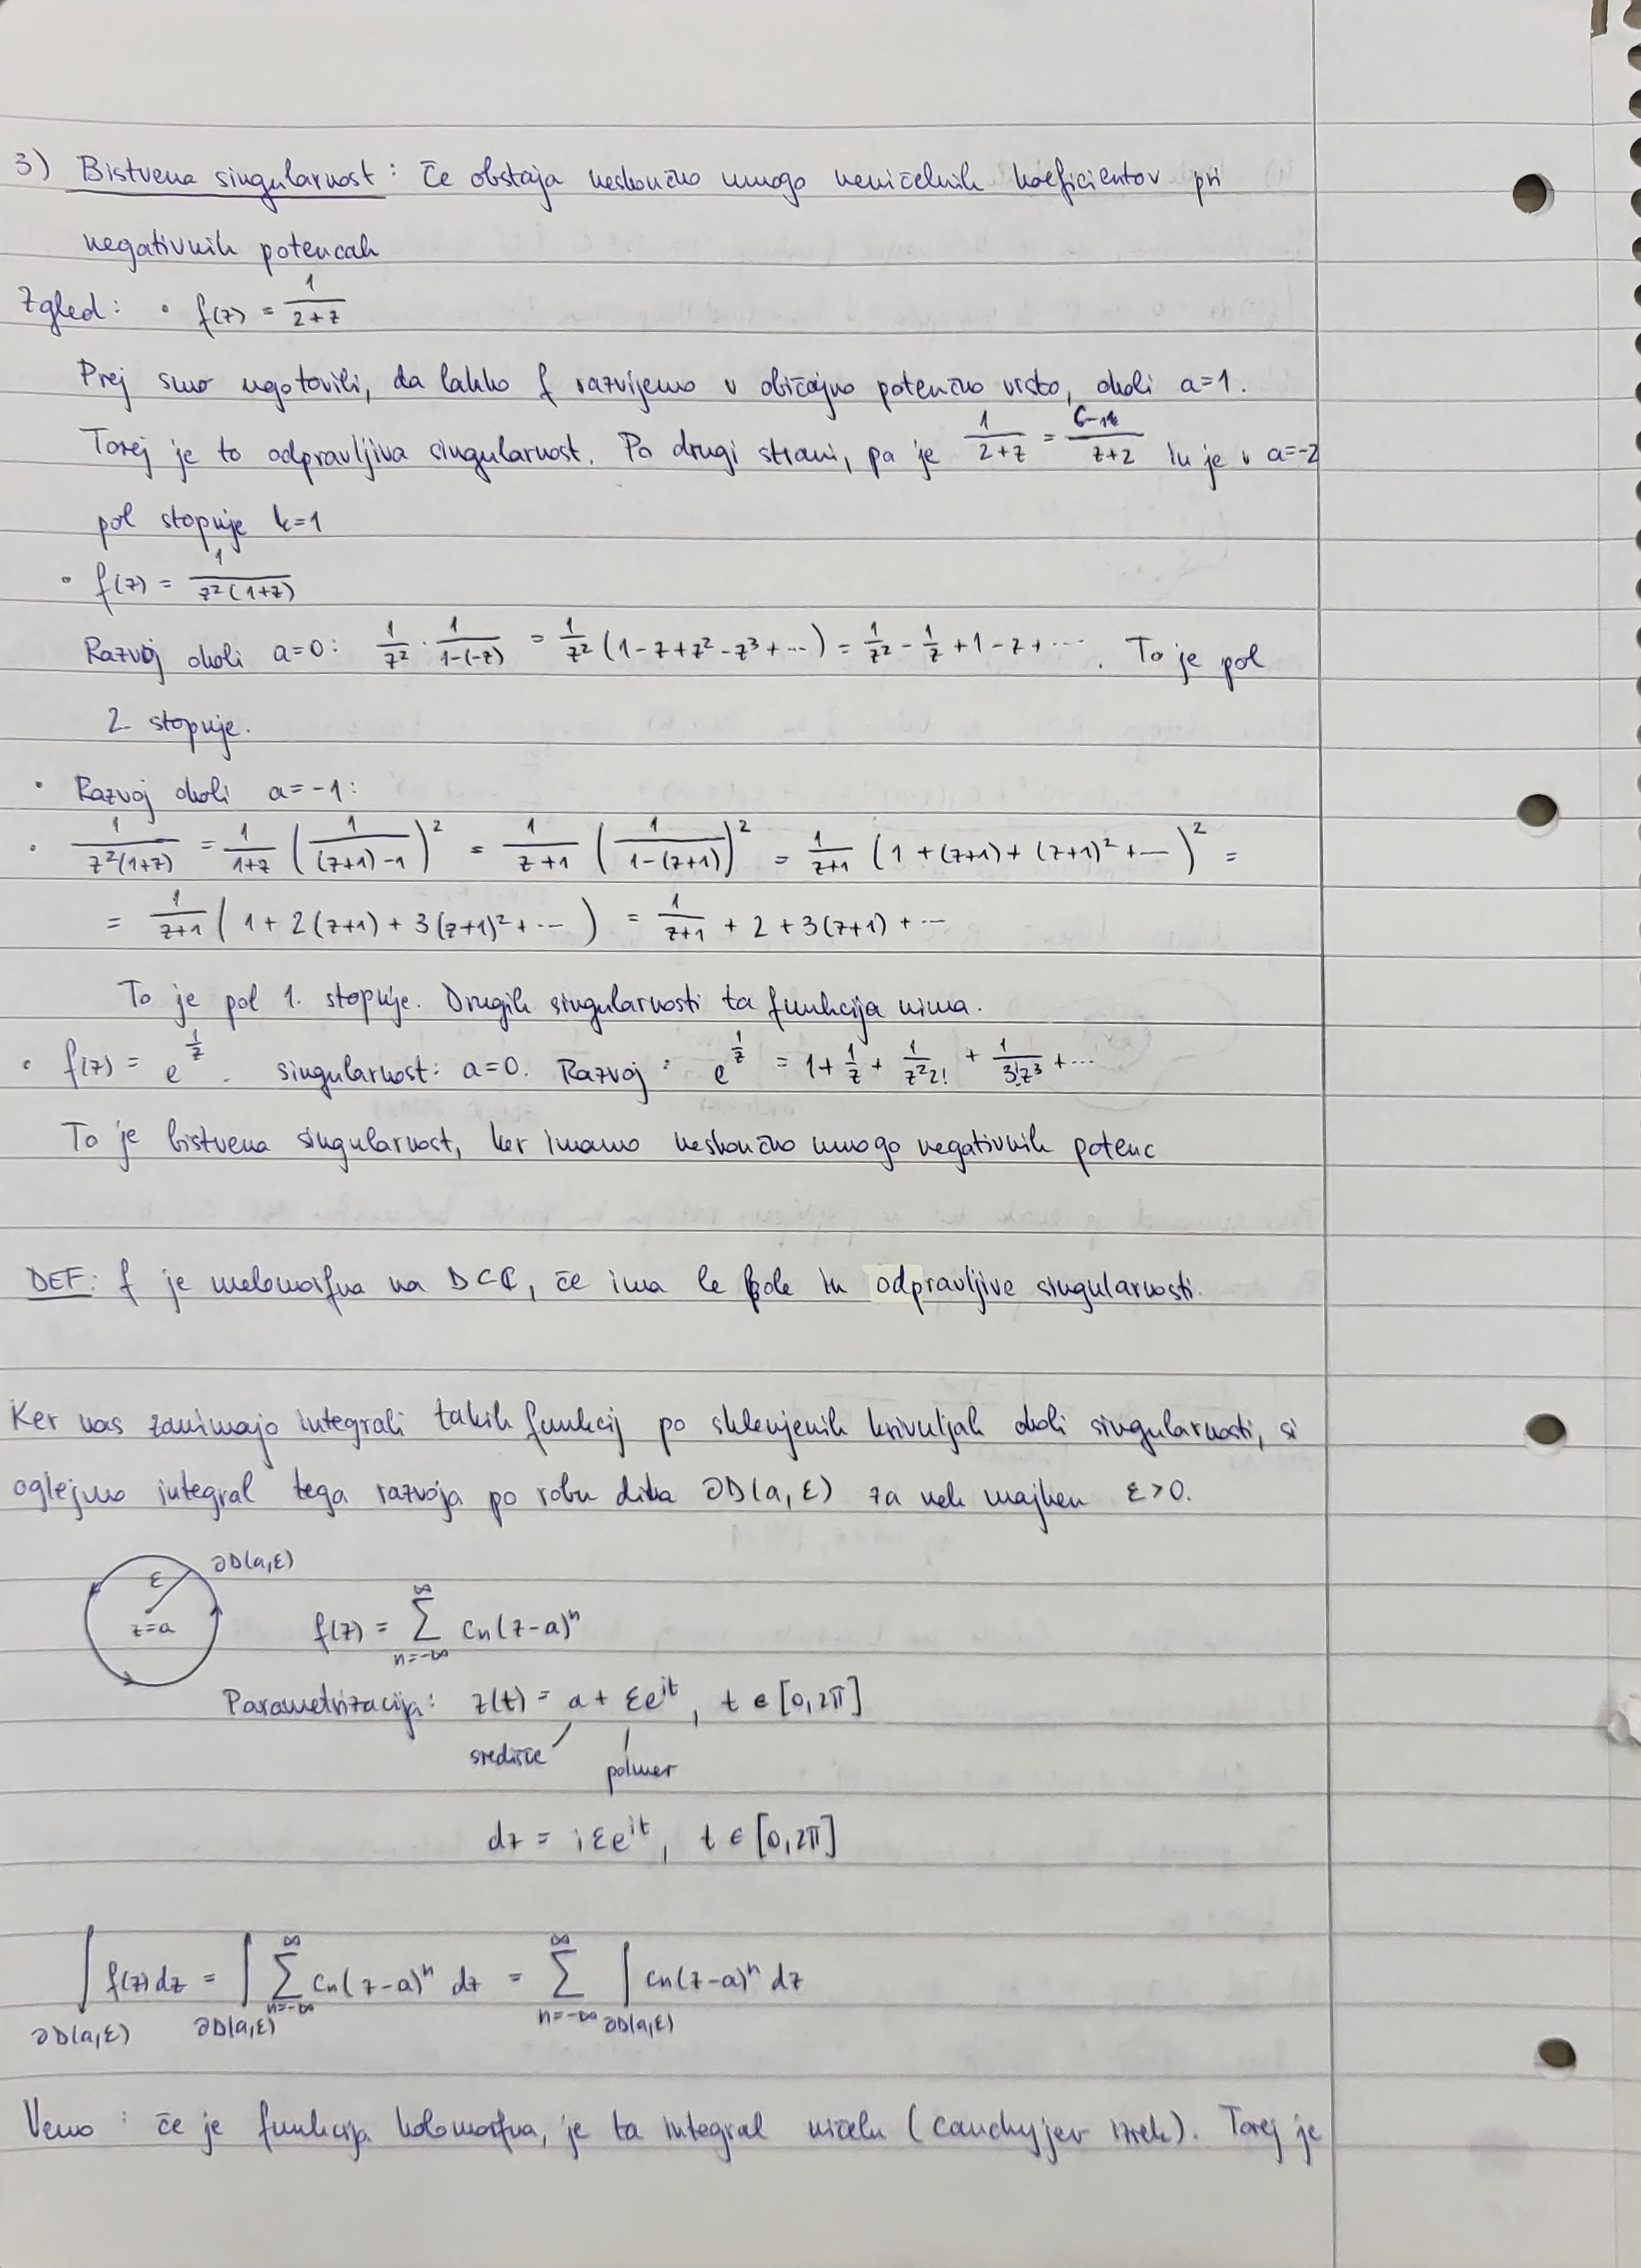 3) Bistvena singularnost: Če obstaja neskončno mnogo neničelnih koeficientov pri
negativnih potencah
Zgled: • f(z) = 1/(2+z)
Prej smo ugotovili, da lahko f razvijemo v običajno potenčno vrsto, okoli a=1.
Torej je to odpravljiva singularnost. Po drugi strani, pa je 1/(2+z) = C₋₁/(z+2) in je v a=-2
pol stopnje k=1
• f(z) = 1/(z²(1+z))
Razvoj okoli a=0: 1/z² · 1/(1-(-z)) = 1/z² (1-z+z²-z³+...) = 1/z² - 1/z + 1 - z + ... . To je pol
2 stopnje.
• Razvoj okoli a=-1:
• 1/(z²(1+z)) = 1/(1+z) (1/((z+1)-1))² = 1/(z+1) (1/(1-(z+1)))² = 1/(z+1) (1+(z+1)+(z+1)²+...)² =
= 1/(z+1) (1+2(z+1)+3(z+1)²+...) = 1/(z+1) + 2 + 3(z+1) + ...
To je pol 1. stopnje. Drugih singularnosti ta funkcija nima.
• f(z) = e^(1/z) . singularnost: a=0. Razvoj: e^(1/z) = 1 + 1/z + 1/(z²2!) + 1/(3!z³) + ...
To je bistvena singularnost, ker imamo neskončno mnogo negativnih potenc
DEF: f je melomorfna na D⊂ℂ, če ima le pole in odpravljive singularnosti.
Ker nas zanimajo integrali takih funkcij po sklenjenih krivuljah okoli singularnosti, si
oglejmo integral tega razvoja po robu diska ∂D(a,ε) za nek majhen ε>0.
∂D(a,ε)
ε
z=a
f(z) = ∑_{n=-∞}^{∞} cn(z-a)ⁿ
Parametrizacija: z(t) = a + εe^{it}, t ∈ [0,2π]
središče polmer
dz = iεe^{it}, t ∈ [0,2π]
∫_{∂D(a,ε)} f(z)dz = ∫_{∂D(a,ε)} ∑_{n=-∞}^{∞} cn(z-a)ⁿ dz = ∑_{n=-∞}^{∞} ∫_{∂D(a,ε)} cn(z-a)ⁿ dz
Vemo: če je funkcija holomorfna, je ta integral ničeln (Cauchyjev izrek). Torej je